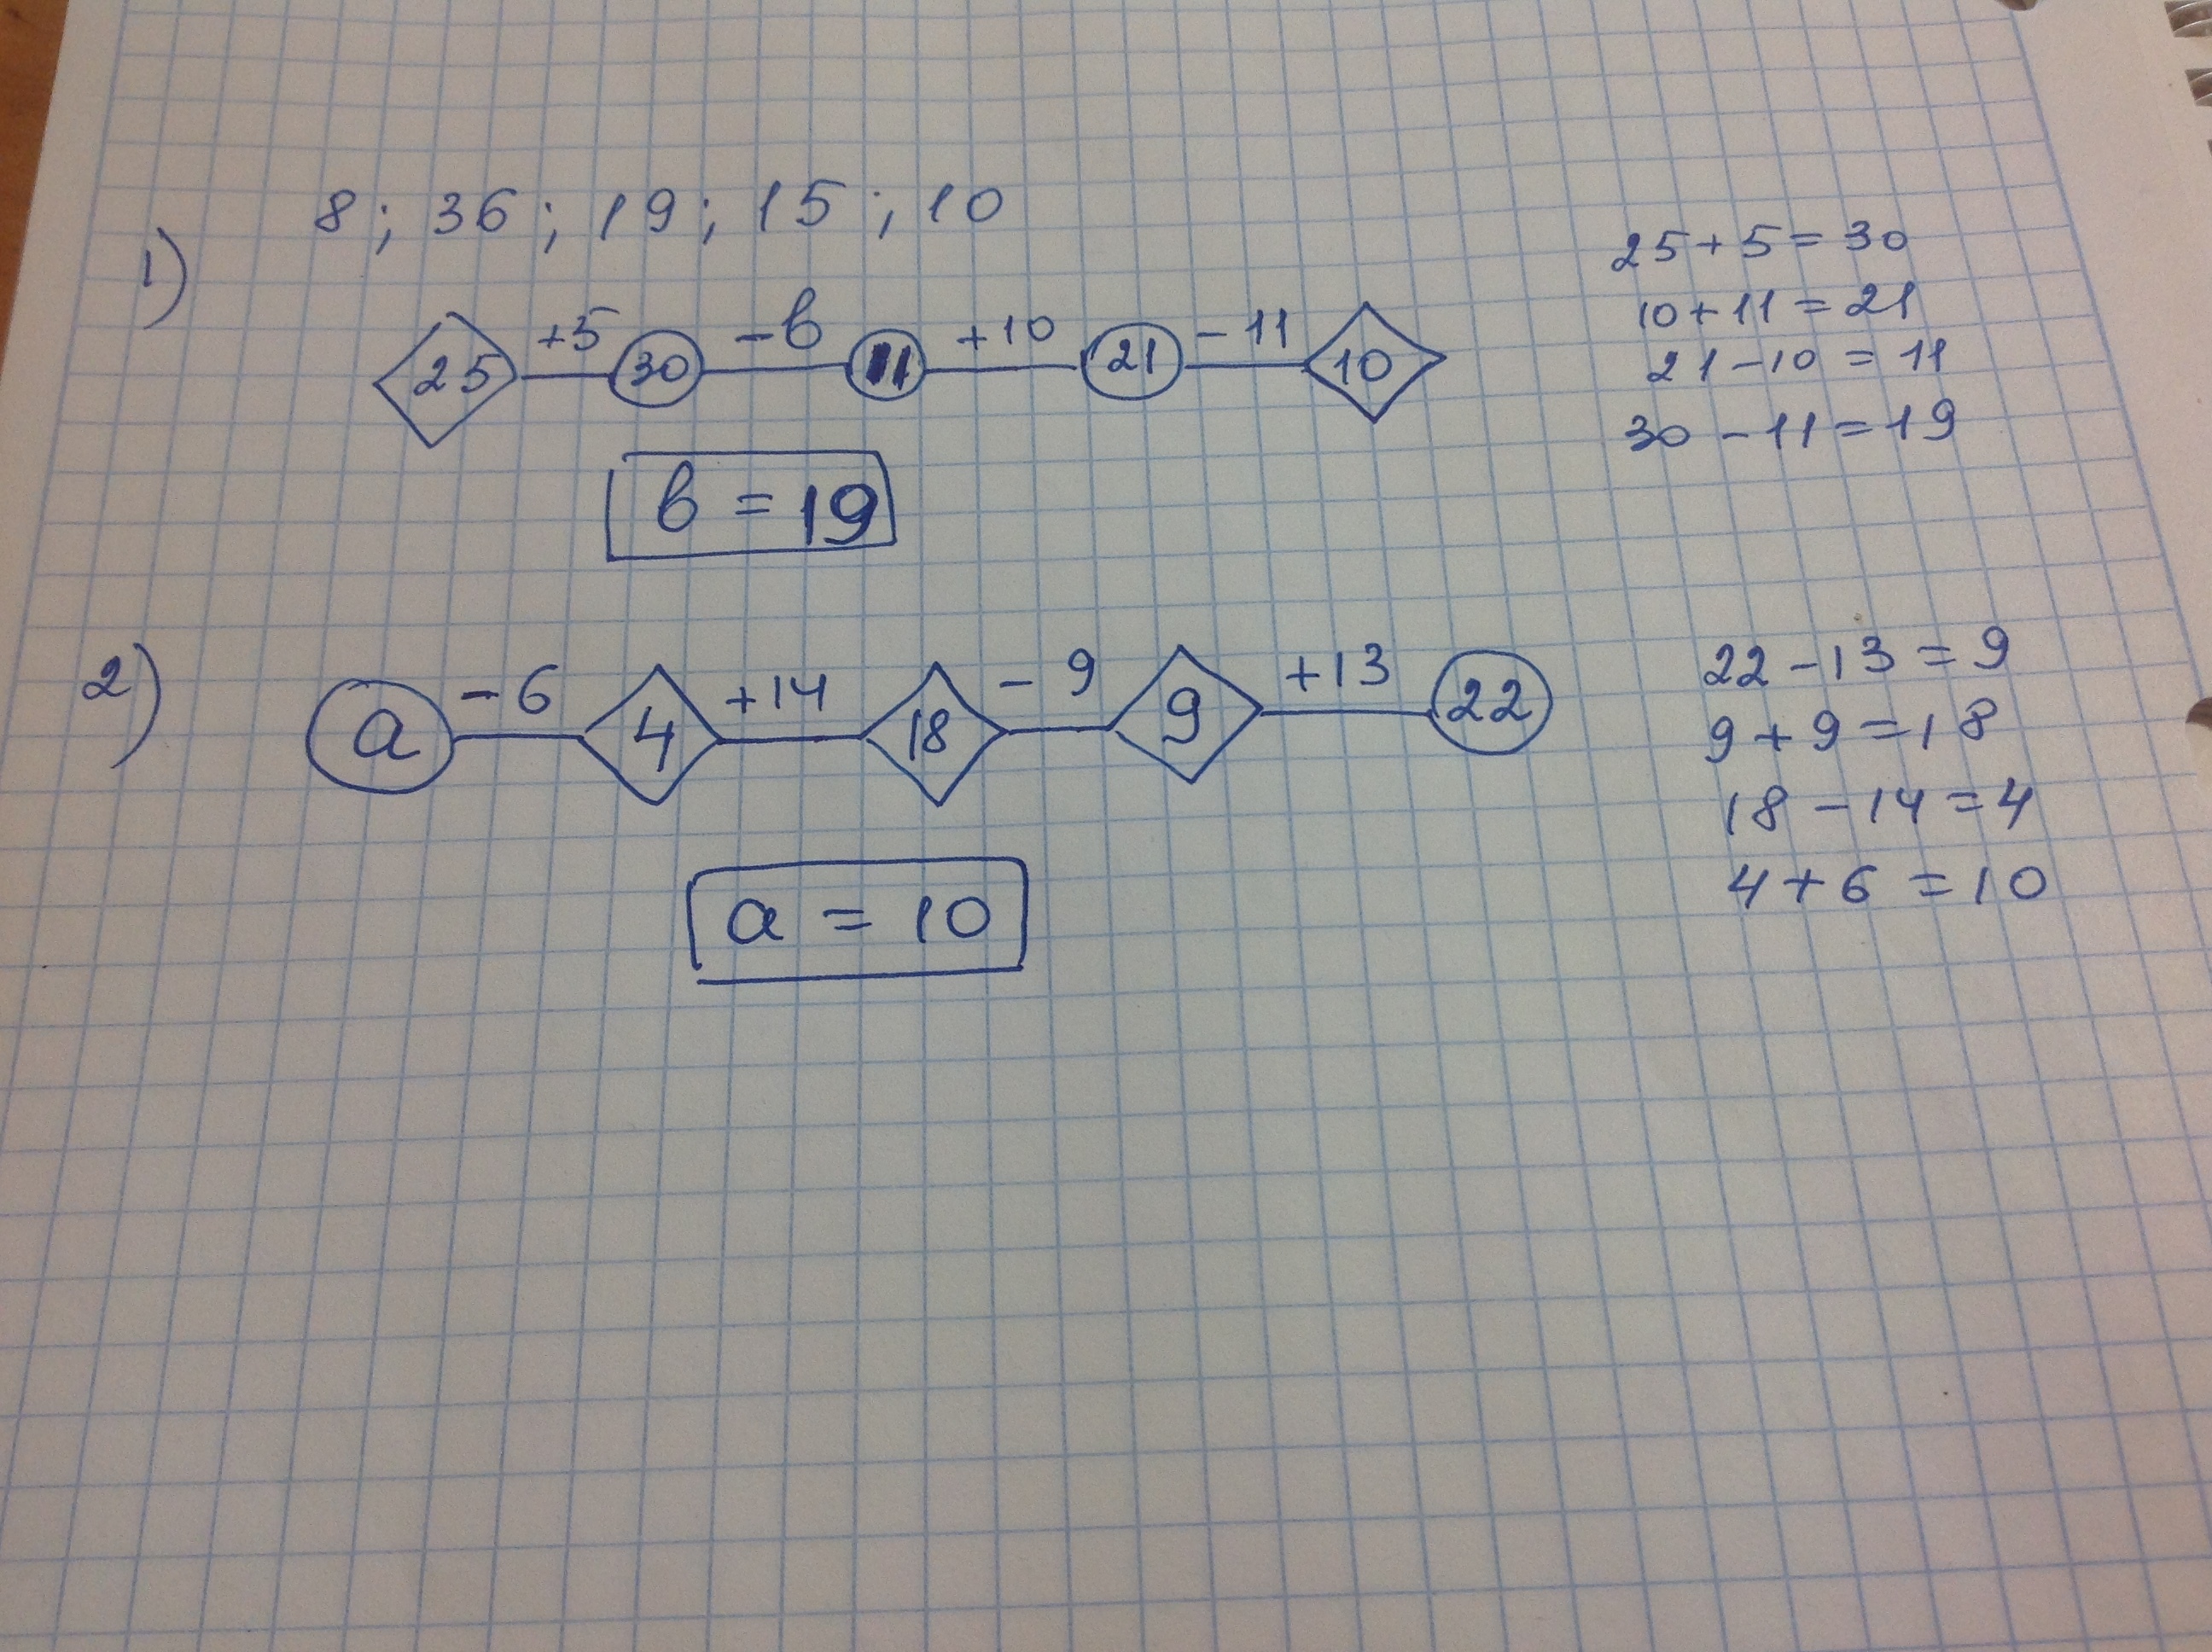 8; 36; 19; 15; 10
1)
25 +5 30 -в 11 +10 21 -11 10
в = 19
25+5=30
10+11=21
21-10=11
30-11=19
2)
а -6 4 +14 18 -9 9 +13 22
а = 10
22-13=9
9+9=18
18-14=4
4+6=10